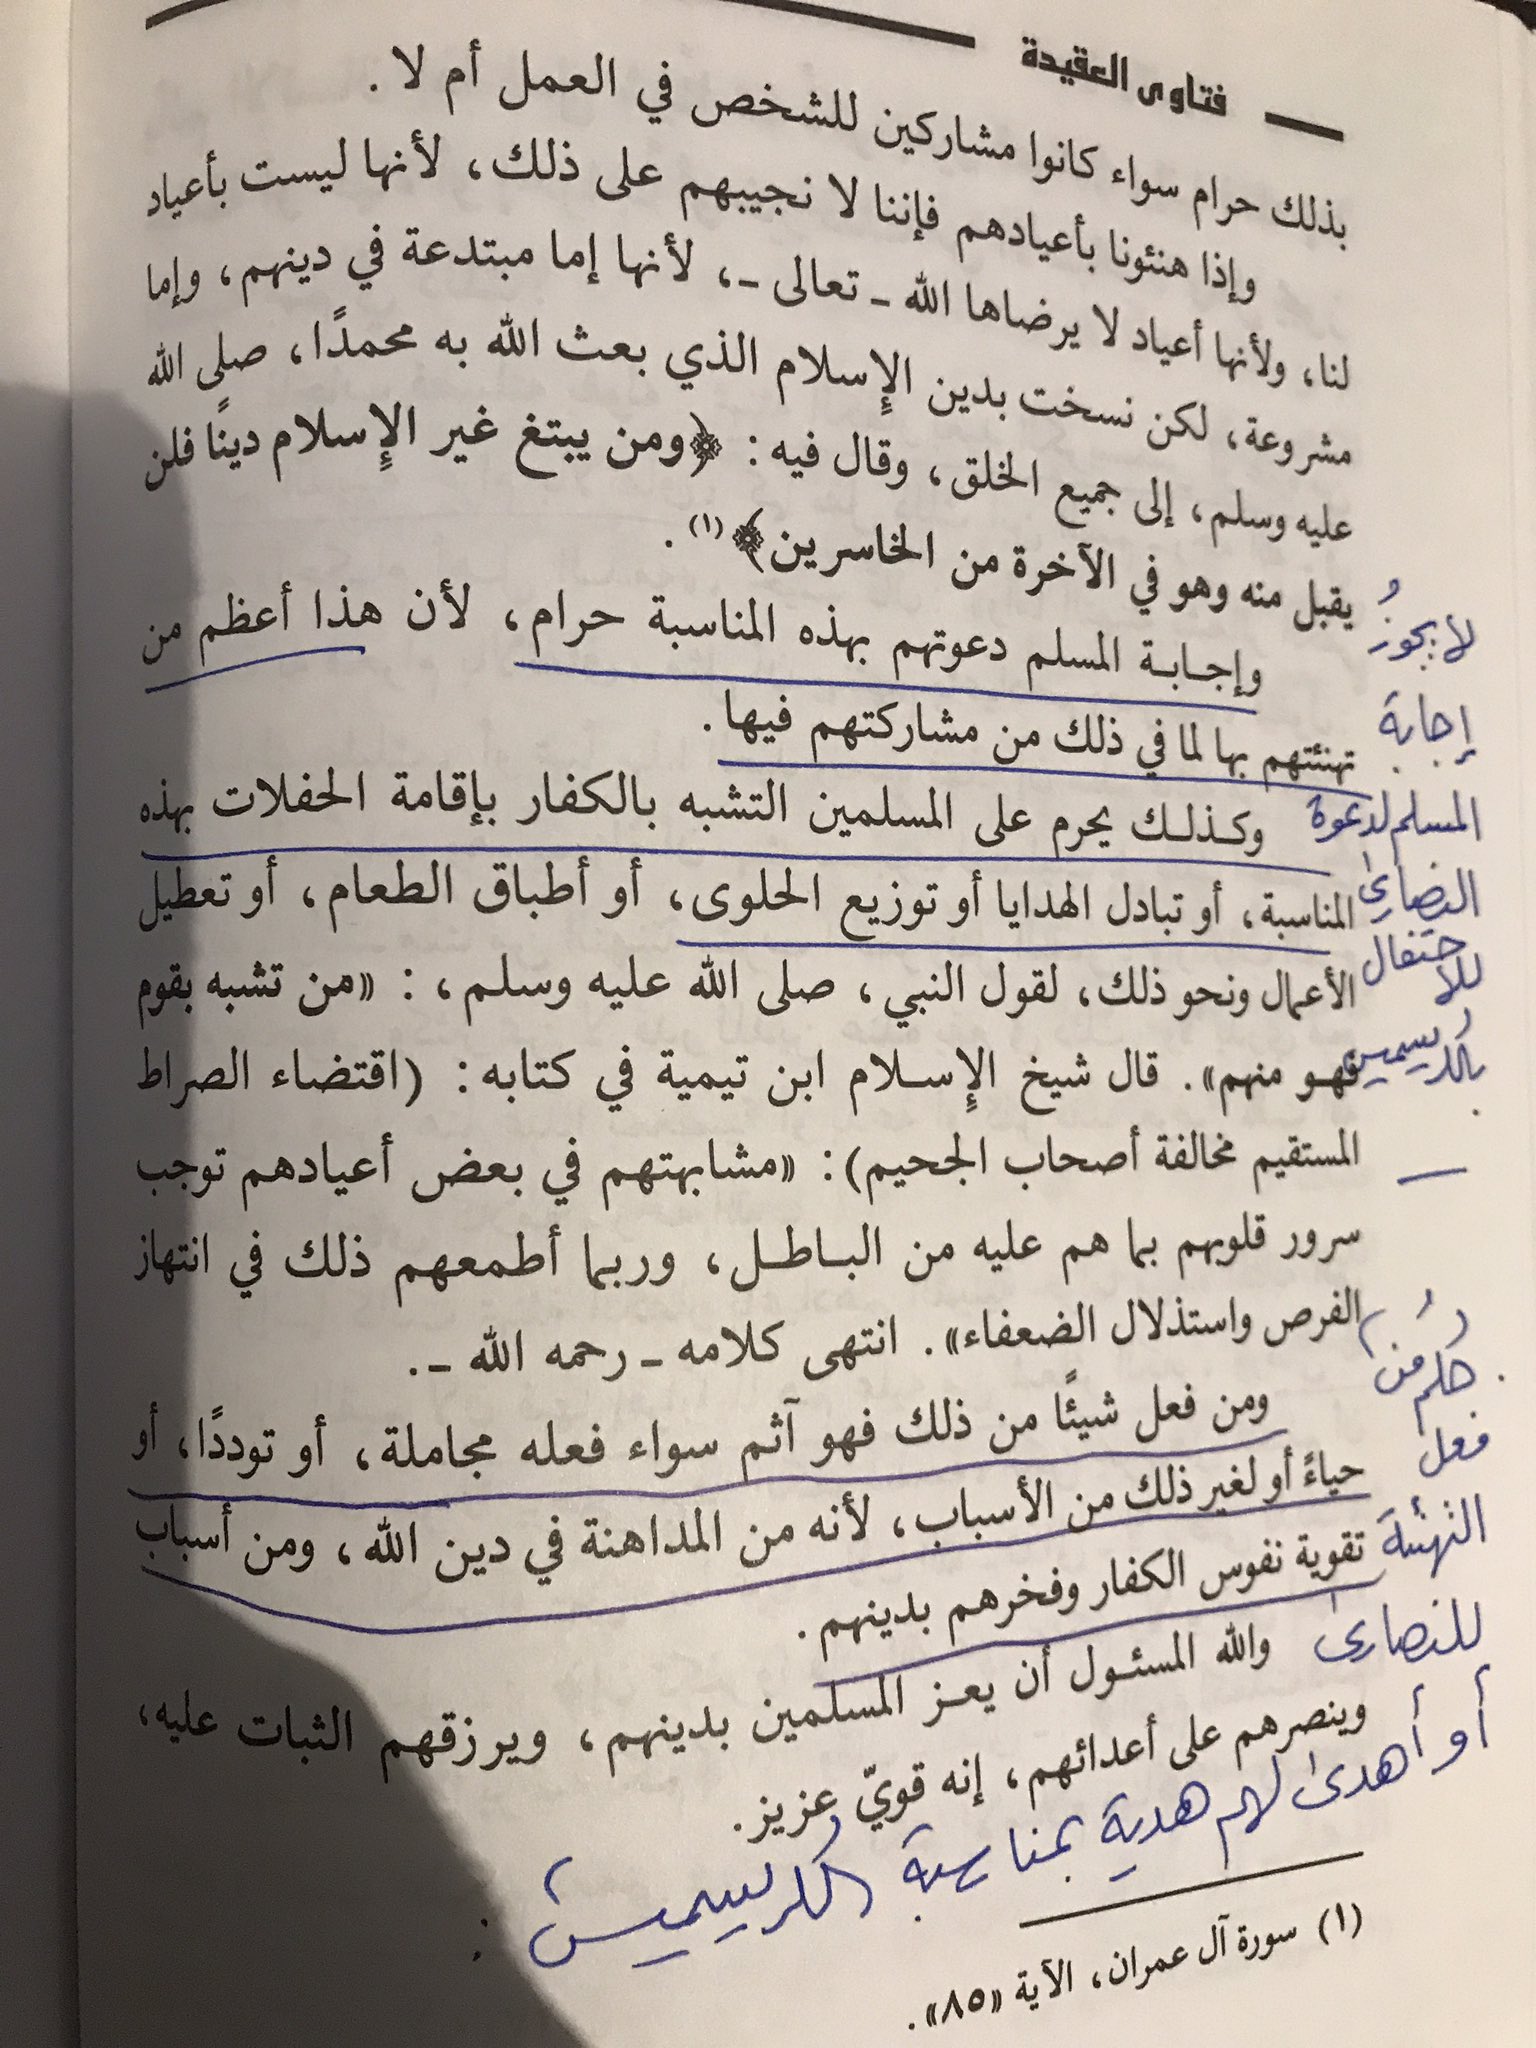 فتاوى العقيدة
بذلك حرام سواء كانوا مشاركين للشخص في العمل أم لا .
وإذا هنئونا بأعيادهم فإننا لا نجيبهم على ذلك، لأنها ليست بأعياد
لنا، ولأنها أعياد لا يرضاها الله ـ تعالى ـ، لأنها إما مبتدعة في دينهم، وإما
مشروعة، لكن نسخت بدين الإِسلام الذي بعث الله به محمدًا، صلى الله
عليه وسلم، إلى جميع الخلق، وقال فيه: ﴿ومن يبتغ غير الإِسلام دينًا فلن
يقبل منه وهو في الآخرة من الخاسرين﴾(١) .
وإجابة المسلم دعوتهم بهذه المناسبة حرام، لأن هذا أعظم من
تهنئتهم بها لما في ذلك من مشاركتهم فيها.
وكذلك يحرم على المسلمين التشبه بالكفار بإقامة الحفلات بهذه
المناسبة، أو تبادل الهدايا أو توزيع الحلوى، أو أطباق الطعام، أو تعطيل
الأعمال ونحو ذلك، لقول النبي، صلى الله عليه وسلم، : «من تشبه بقوم
فهو منهم». قال شيخ الإِسلام ابن تيمية في كتابه: (اقتضاء الصراط
المستقيم مخالفة أصحاب الجحيم): «مشابهتهم في بعض أعيادهم توجب
سرور قلوبهم بما هم عليه من الباطل، وربما أطمعهم ذلك في انتهاز
الفرص واستذلال الضعفاء». انتهى كلامه ـ رحمه الله ـ.
ومن فعل شيئًا من ذلك فهو آثم سواء فعله مجاملة، أو توددًا، أو
حياءً أو لغير ذلك من الأسباب، لأنه من المداهنة في دين الله، ومن أسباب
تقوية نفوس الكفار وفخرهم بدينهم.
والله المسئول أن يعز المسلمين بدينهم، ويرزقهم الثبات عليه،
وينصرهم على أعدائهم، إنه قويّ عزيز.
(١) سورة آل عمران، الآية «٨٥».
لا يجوزُ
إجابة
المسلم لدعوة
النصارى
للاحتفال
بالكريسمس
حكم من
فعل
التهنئة
للنصارى
أو أهدى لهم هدية بمناسبة الكريسميس :